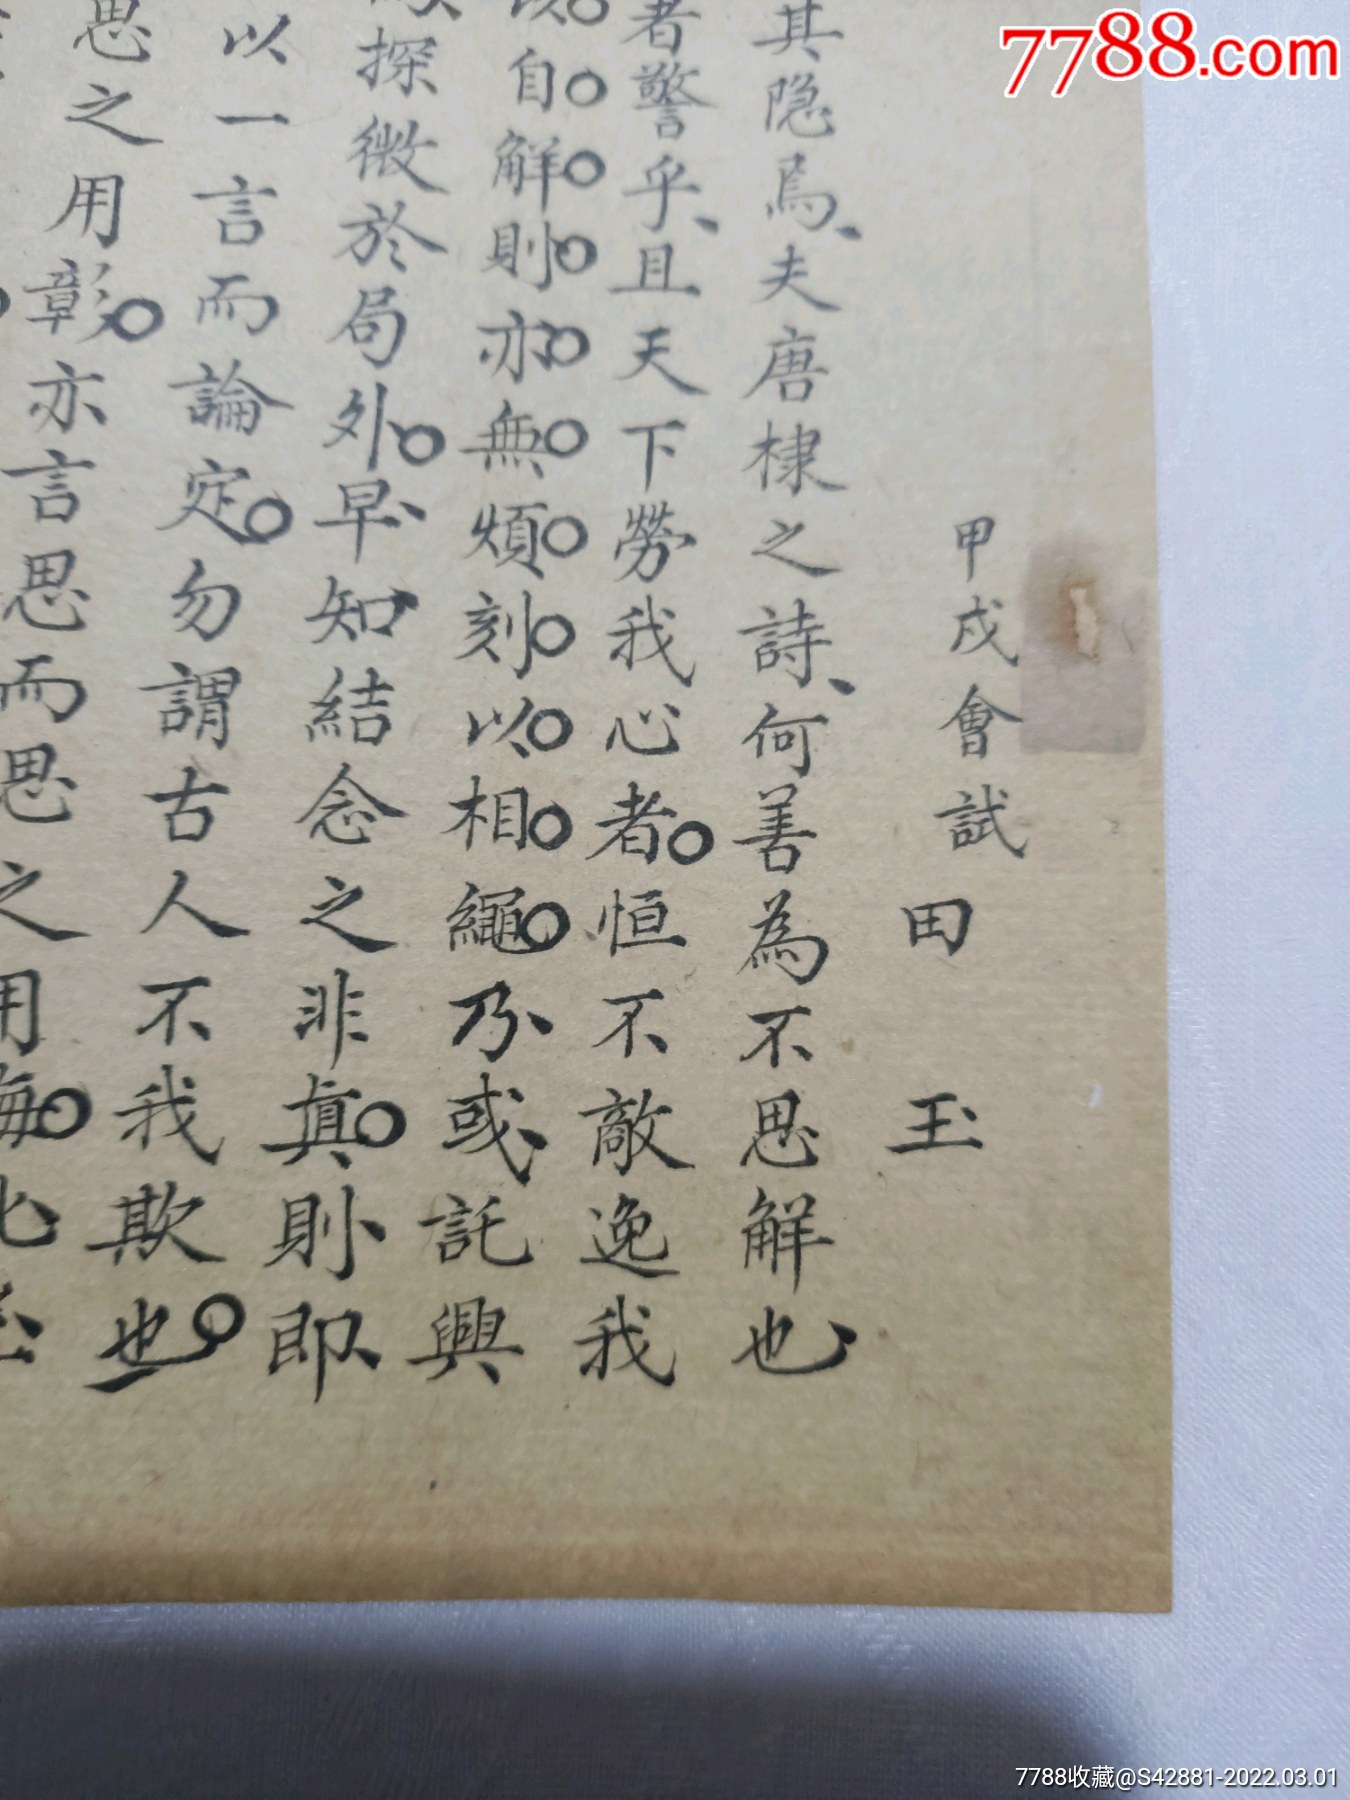 7788.com
甲戌會試田玉
其隐焉夫唐棣之詩何善為不思解也
者警乎且天下勞我心者恒不敵逸我
自解則亦無煩刻以相繩乃或託興
探微於局外早知結念之非真則即
以一言而論定勿謂古人不我欺也
思之用彰亦言思而思之用
7788收藏@S42881-2022.03.01